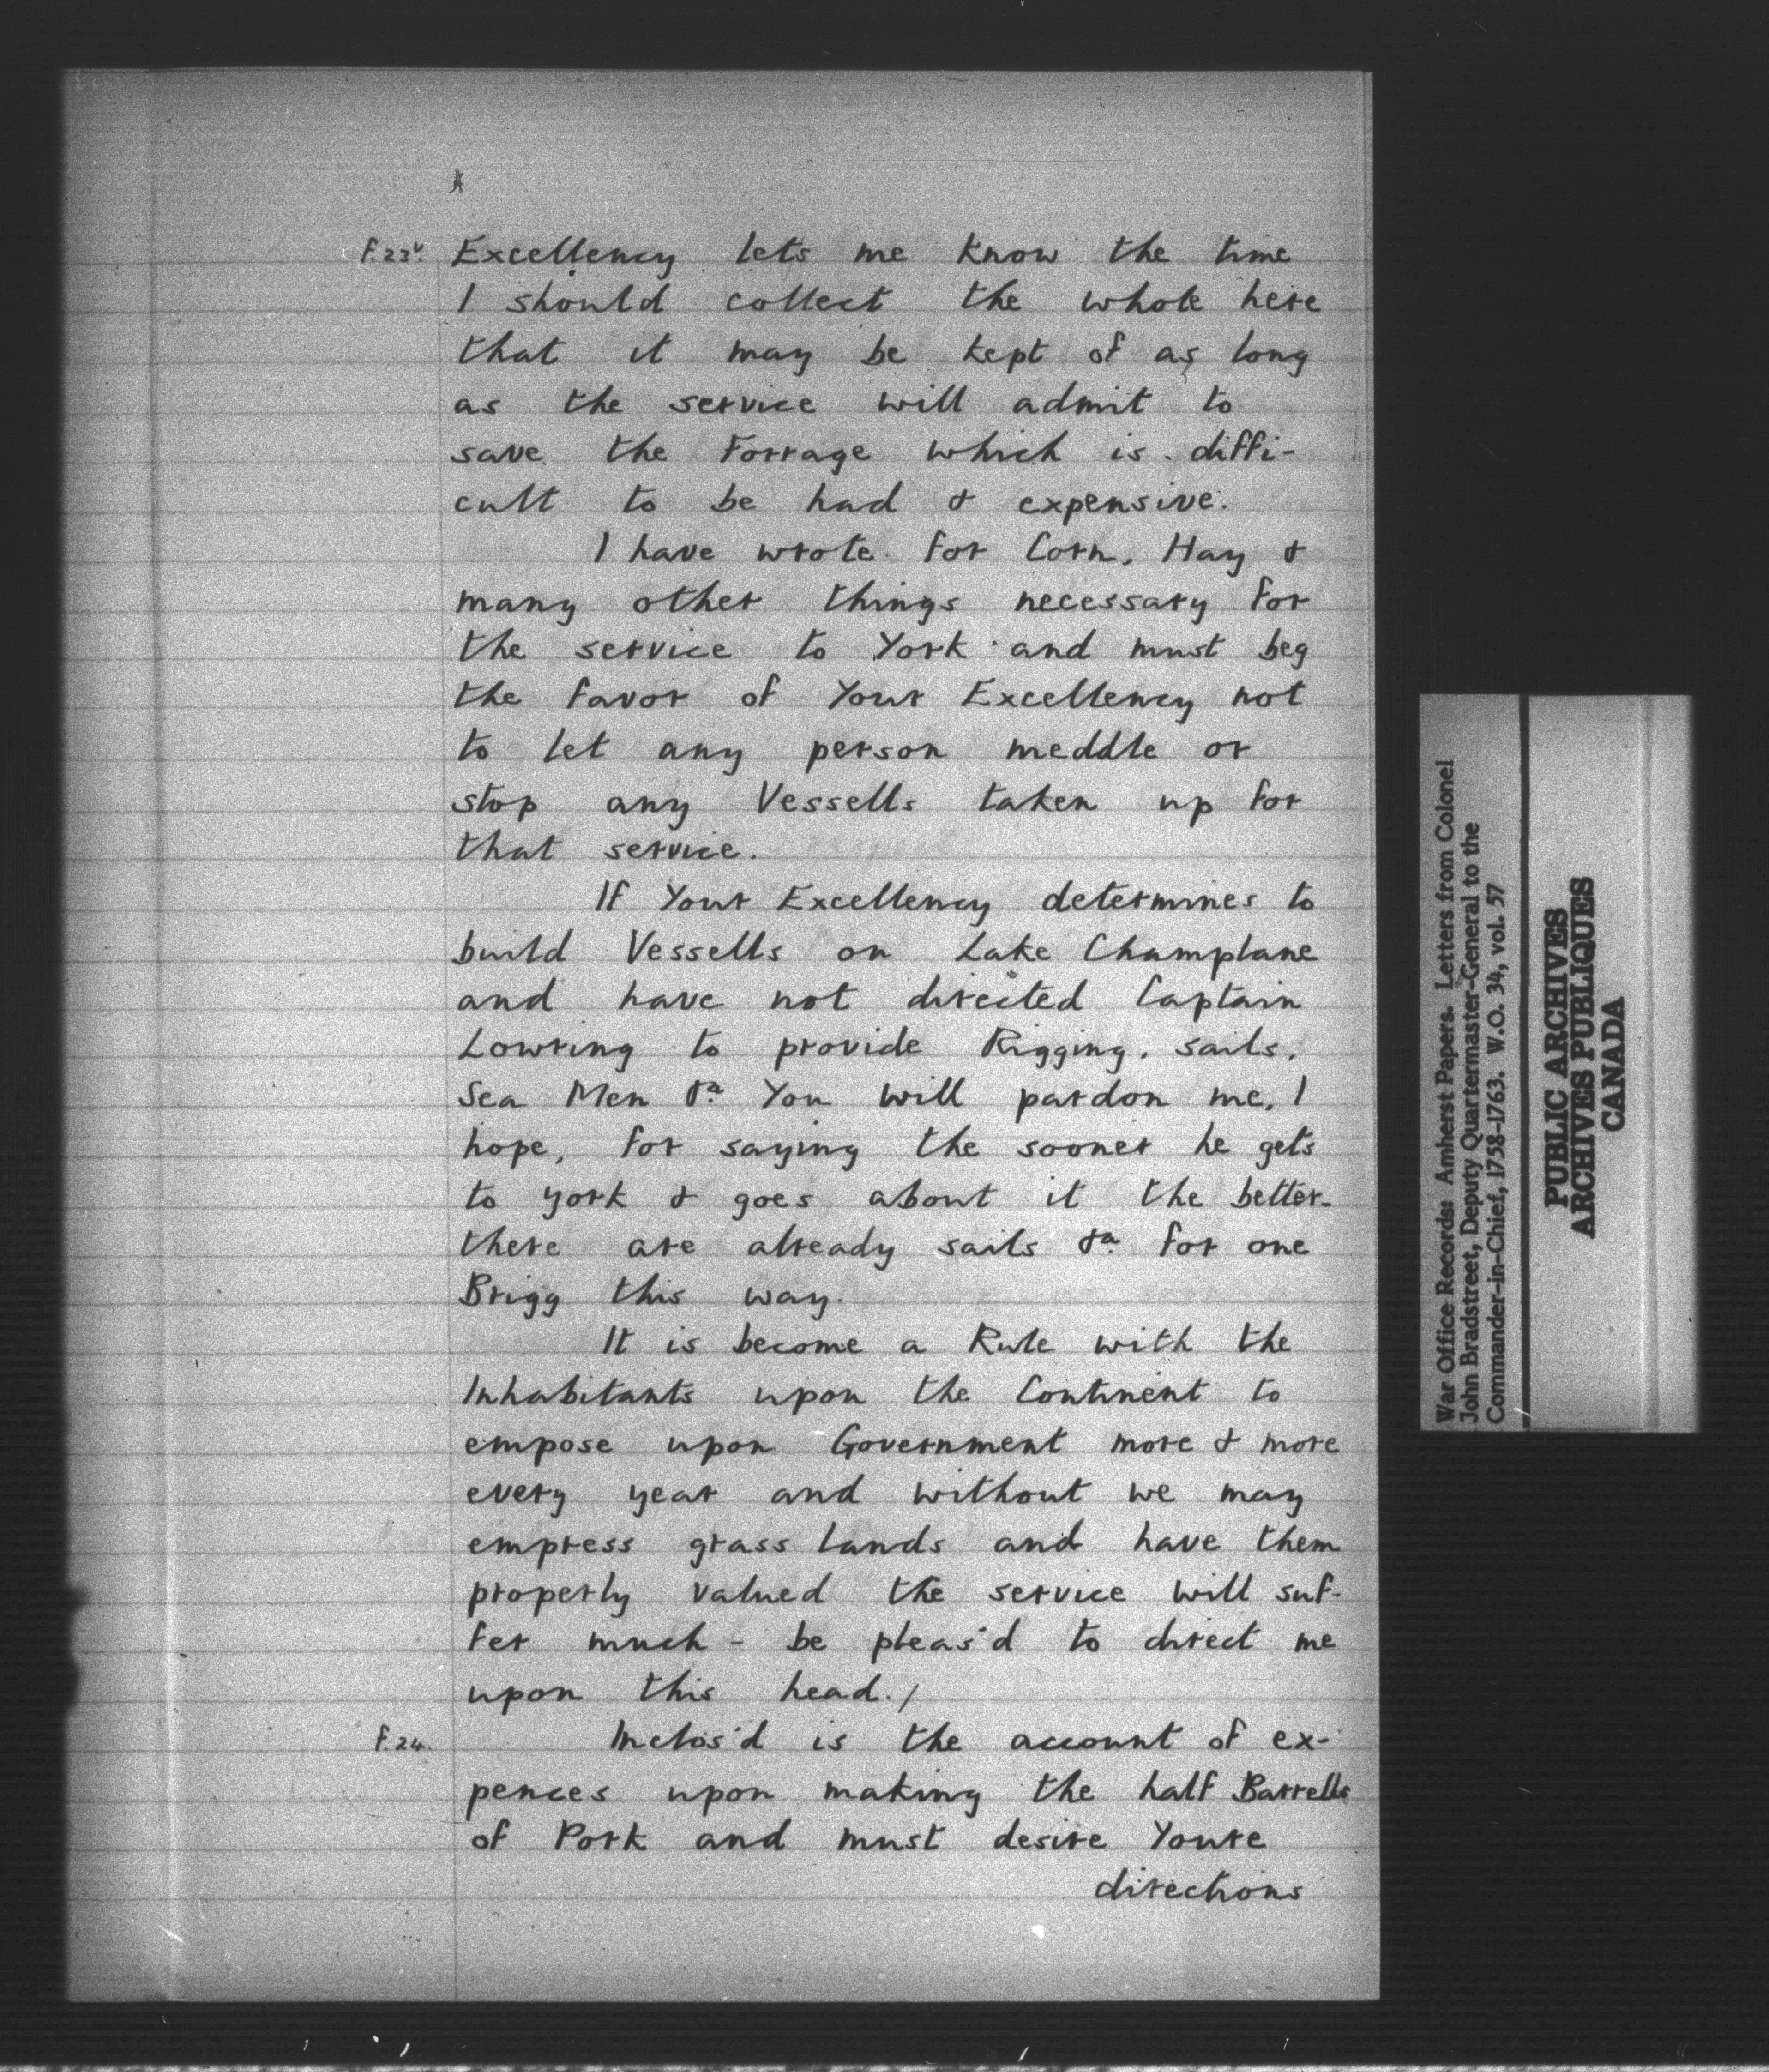 f.23v. Excellency lets me know the time
I should collect the whole here
that it may be kept of as long
as the service will admit to
save the Forrage which is diffi-
cult to be had & expensive.
I have wrote for Corn, Hay &
many other things necessary for
the service to York and must beg
the favor of Your Excellency not
to let any person meddle or
stop any Vessells taken up for
that service.
If Your Excellency determines to
build Vessells on Lake Champlane
and have not directed Captain
Lowring to provide Rigging, sails,
Sea Men &a. You will pardon me, I
hope, for saying the sooner he gets
to york & goes about it the better-
there are already sails &a. for one
Brigg this way.
It is become a Rule with the
Inhabitants upon the Continent to
empose upon Government more & more
every year and without we may
empress grass lands and have them
properly valued the service will suf-
fer much - be pleas'd to direct me
upon this head./
f.24. Inclos'd is the account of ex-
pences upon making the half Barrells
of Pork and must desire Youre
directions
War Office Records: Amherst Papers. Letters from Colonel
John Bradstreet, Deputy Quartermaster-General to the
Commander-in-Chief, 1758-1763. W.O. 34, vol. 57
PUBLIC ARCHIVES
ARCHIVES PUBLIQUES
CANADA